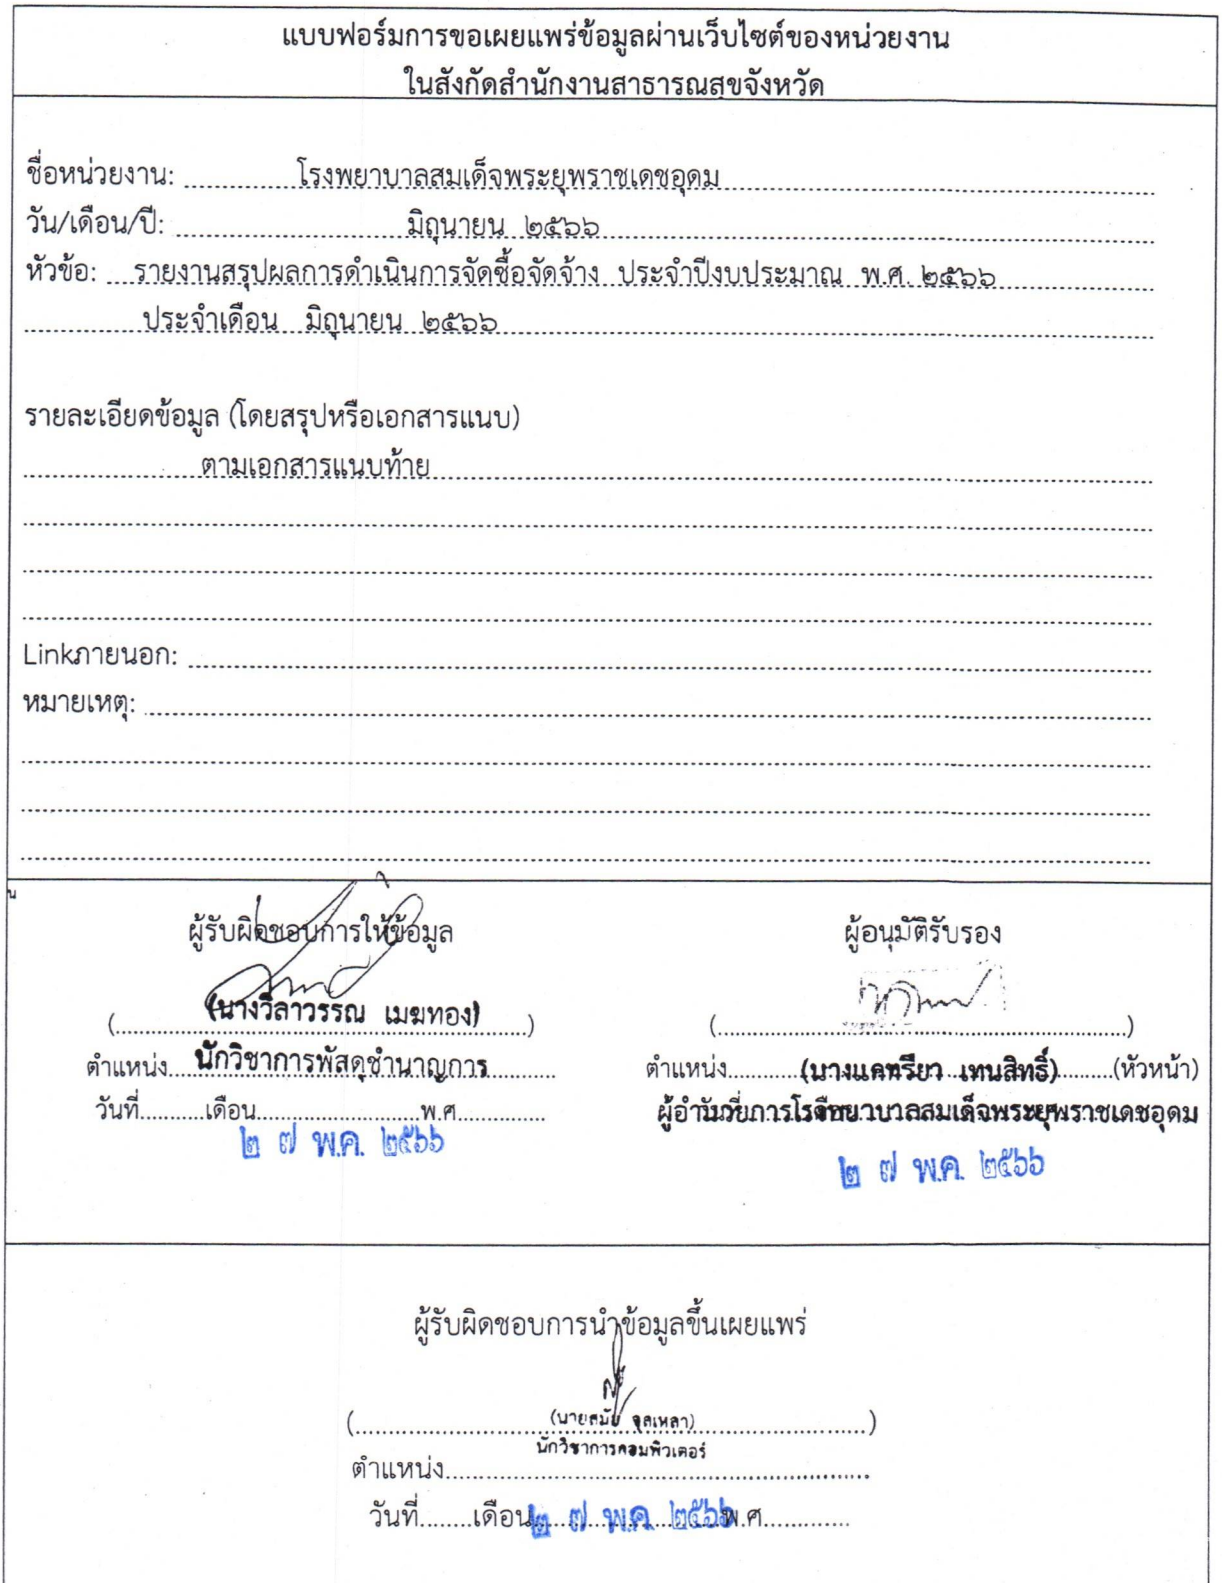 แบบฟอร์มการขอเผยแพร่ข้อมูลผ่านเว็บไซต์ของหน่วยงาน
ในสังกัดสำนักงานสาธารณสุขจังหวัด
ชื่อหน่วยงาน: โรงพยาบาลสมเด็จพระยุพราชเดชอุดม
วัน/เดือน/ปี: มิถุนายน ๒๕๖๖
หัวข้อ: รายงานสรุปผลการดำเนินการจัดซื้อจัดจ้าง ประจำปีงบประมาณ พ.ศ. ๒๕๖๖
ประจำเดือน มิถุนายน ๒๕๖๖
รายละเอียดข้อมูล (โดยสรุปหรือเอกสารแนบ)
ตามเอกสารแนบท้าย
Linkภายนอก:
หมายเหตุ:
น
ผู้รับผิดชอบการให้ข้อมูล
(นางวิลาวรรณ เมฆทอง)
ตำแหน่ง นักวิชาการพัสดุชำนาญการ
วันที่ เดือน พ.ศ.
๒ ๗ พ.ค. ๒๕๖๖
ผู้อนุมัติรับรอง
ตำแหน่ง (นางแคทรียา เทนสิทธิ์) (หัวหน้า)
ผู้อำนวยการโรงพยาบาลสมเด็จพระยุพราชเดชอุดม
๒ ๗ พ.ค. ๒๕๖๖
ผู้รับผิดชอบการนำข้อมูลขึ้นเผยแพร่
(นายสมัย จูลเหลา)
นักวิชาการคอมพิวเตอร์
ตำแหน่ง
วันที่ เดือน ๒ ๗ พ.ค. ๒๕๖๖ พ.ศ.